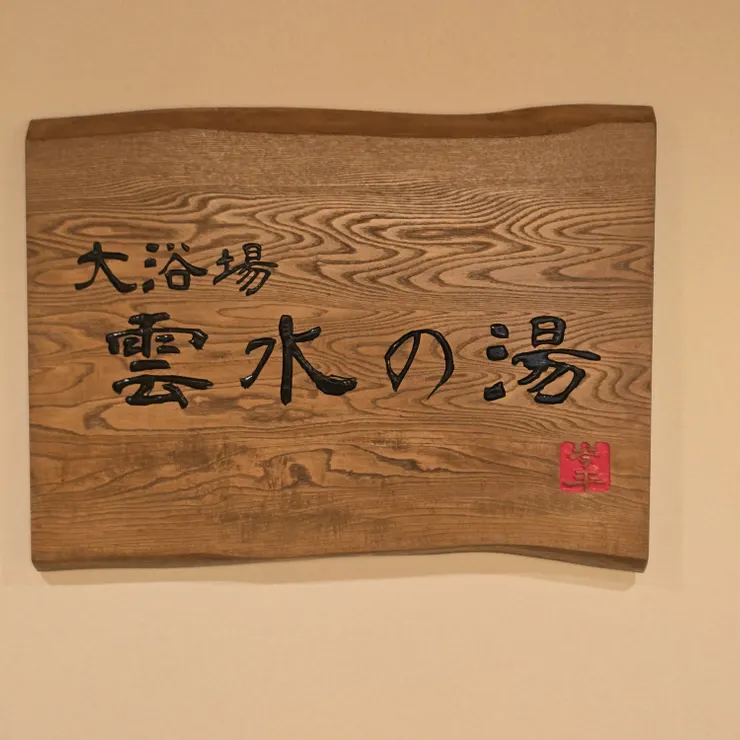 大浴場
雲水の湯